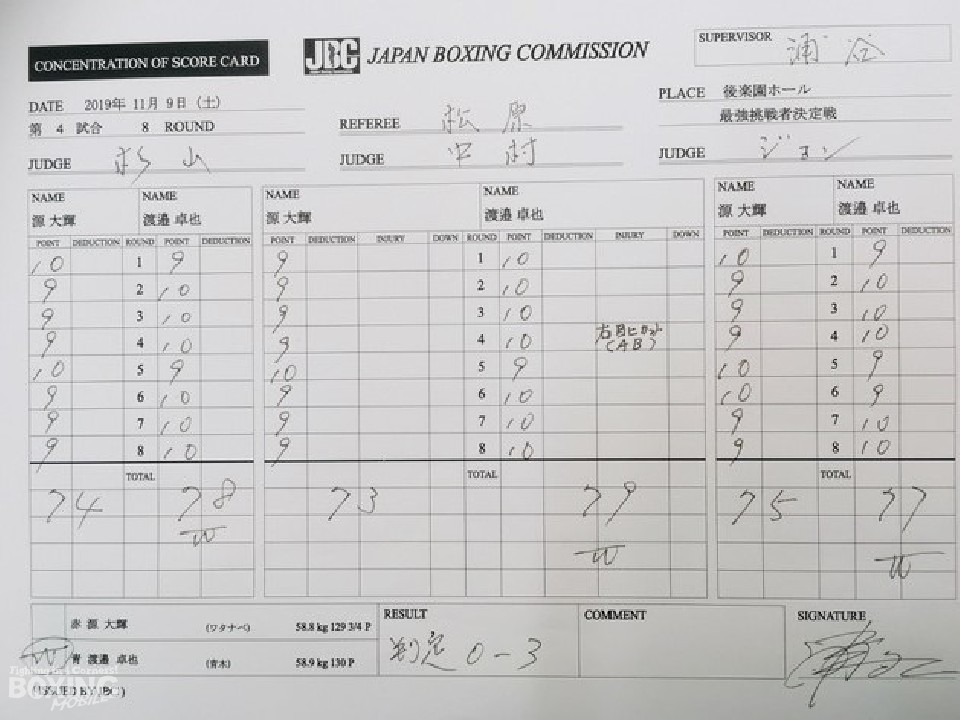 CONCENTRATION OF SCORE CARD
JBC JAPAN BOXING COMMISSION
SUPERVISOR 浦谷
DATE 2019年 11月 9日 (土)
PLACE 後楽園ホール
第 4 試合 8 ROUND
REFEREE 松原
最強挑戦者決定戦
JUDGE 杉山
JUDGE 中村
JUDGE ジョン
NAME NAME NAME NAME NAME NAME
源 大輝 渡邉 卓也 源 大輝 渡邉 卓也 源 大輝 渡邉 卓也
POINT DEDUCTION ROUND POINT DEDUCTION POINT DEDUCTION INJURY DOWN ROUND POINT DEDUCTION INJURY DOWN POINT DEDUCTION ROUND POINT DEDUCTION
10 1 9 9 1 10 10 1 9
9 2 10 9 2 10 9 2 10
9 3 10 9 3 10 9 3 10
9 4 10 9 4 10 右目ヒット (AB) 9 4 10
10 5 9 10 5 9 10 5 9
9 6 10 9 6 10 10 6 9
9 7 10 9 7 10 9 7 10
9 8 10 9 8 10 9 8 10
TOTAL TOTAL TOTAL
74 78 73 79 75 77
W W W
赤 源 大輝 (ワタナベ) 58.8 kg 129 3/4 P
W 青 渡邉 卓也 (青木) 58.9 kg 130 P
RESULT
判定 0-3
COMMENT
SIGNATURE
(ISSUED BY JBC)
BOXING
MOBILE